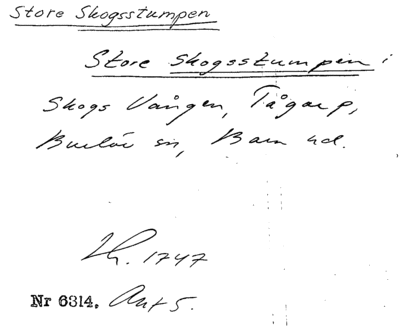 Store Skogsstumpen
Store Skogsstumpen i
Skogs Vången, Tågarp,
Burlöv sn, Bara hd.
Lh. 1747
Nr 6314. Akt 5.